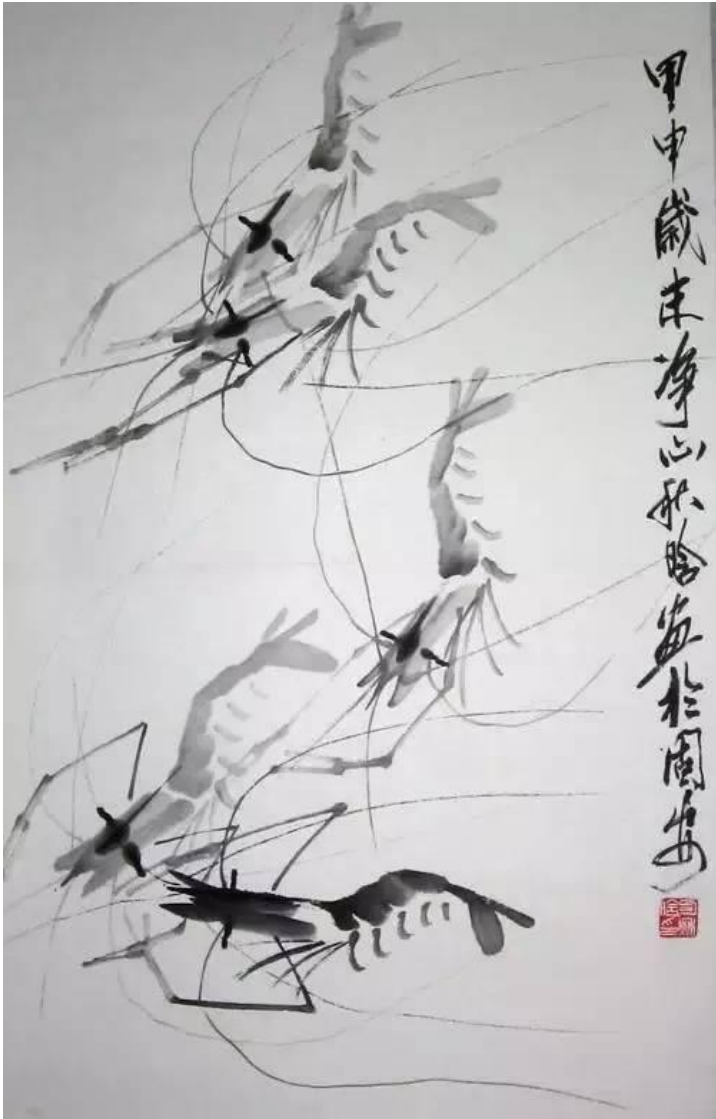 甲申歲末净心秋晗畫於固安